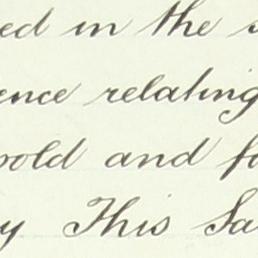 ed in the s
ence relating
pold and fo
y This Sa